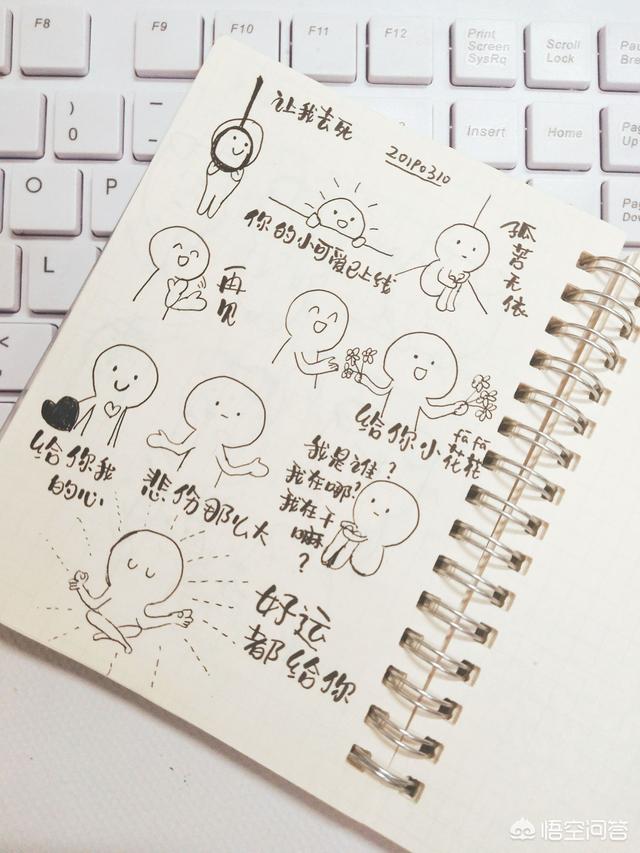 F8
F9
F10
F11
F12
Print
Screen
SysRq
Scroll
Lock
Pau
Break
)
0
-
Insert
Home
Pag
Up
O
P
L
让我去死
20190310
你的小可爱已上线
孤苦无依
再见
给你小花花
fa fa
给你我
的心
悲伤那么大
我是谁？
我在哪？
我在干
嘛
？
好运
都给你
悟空问答